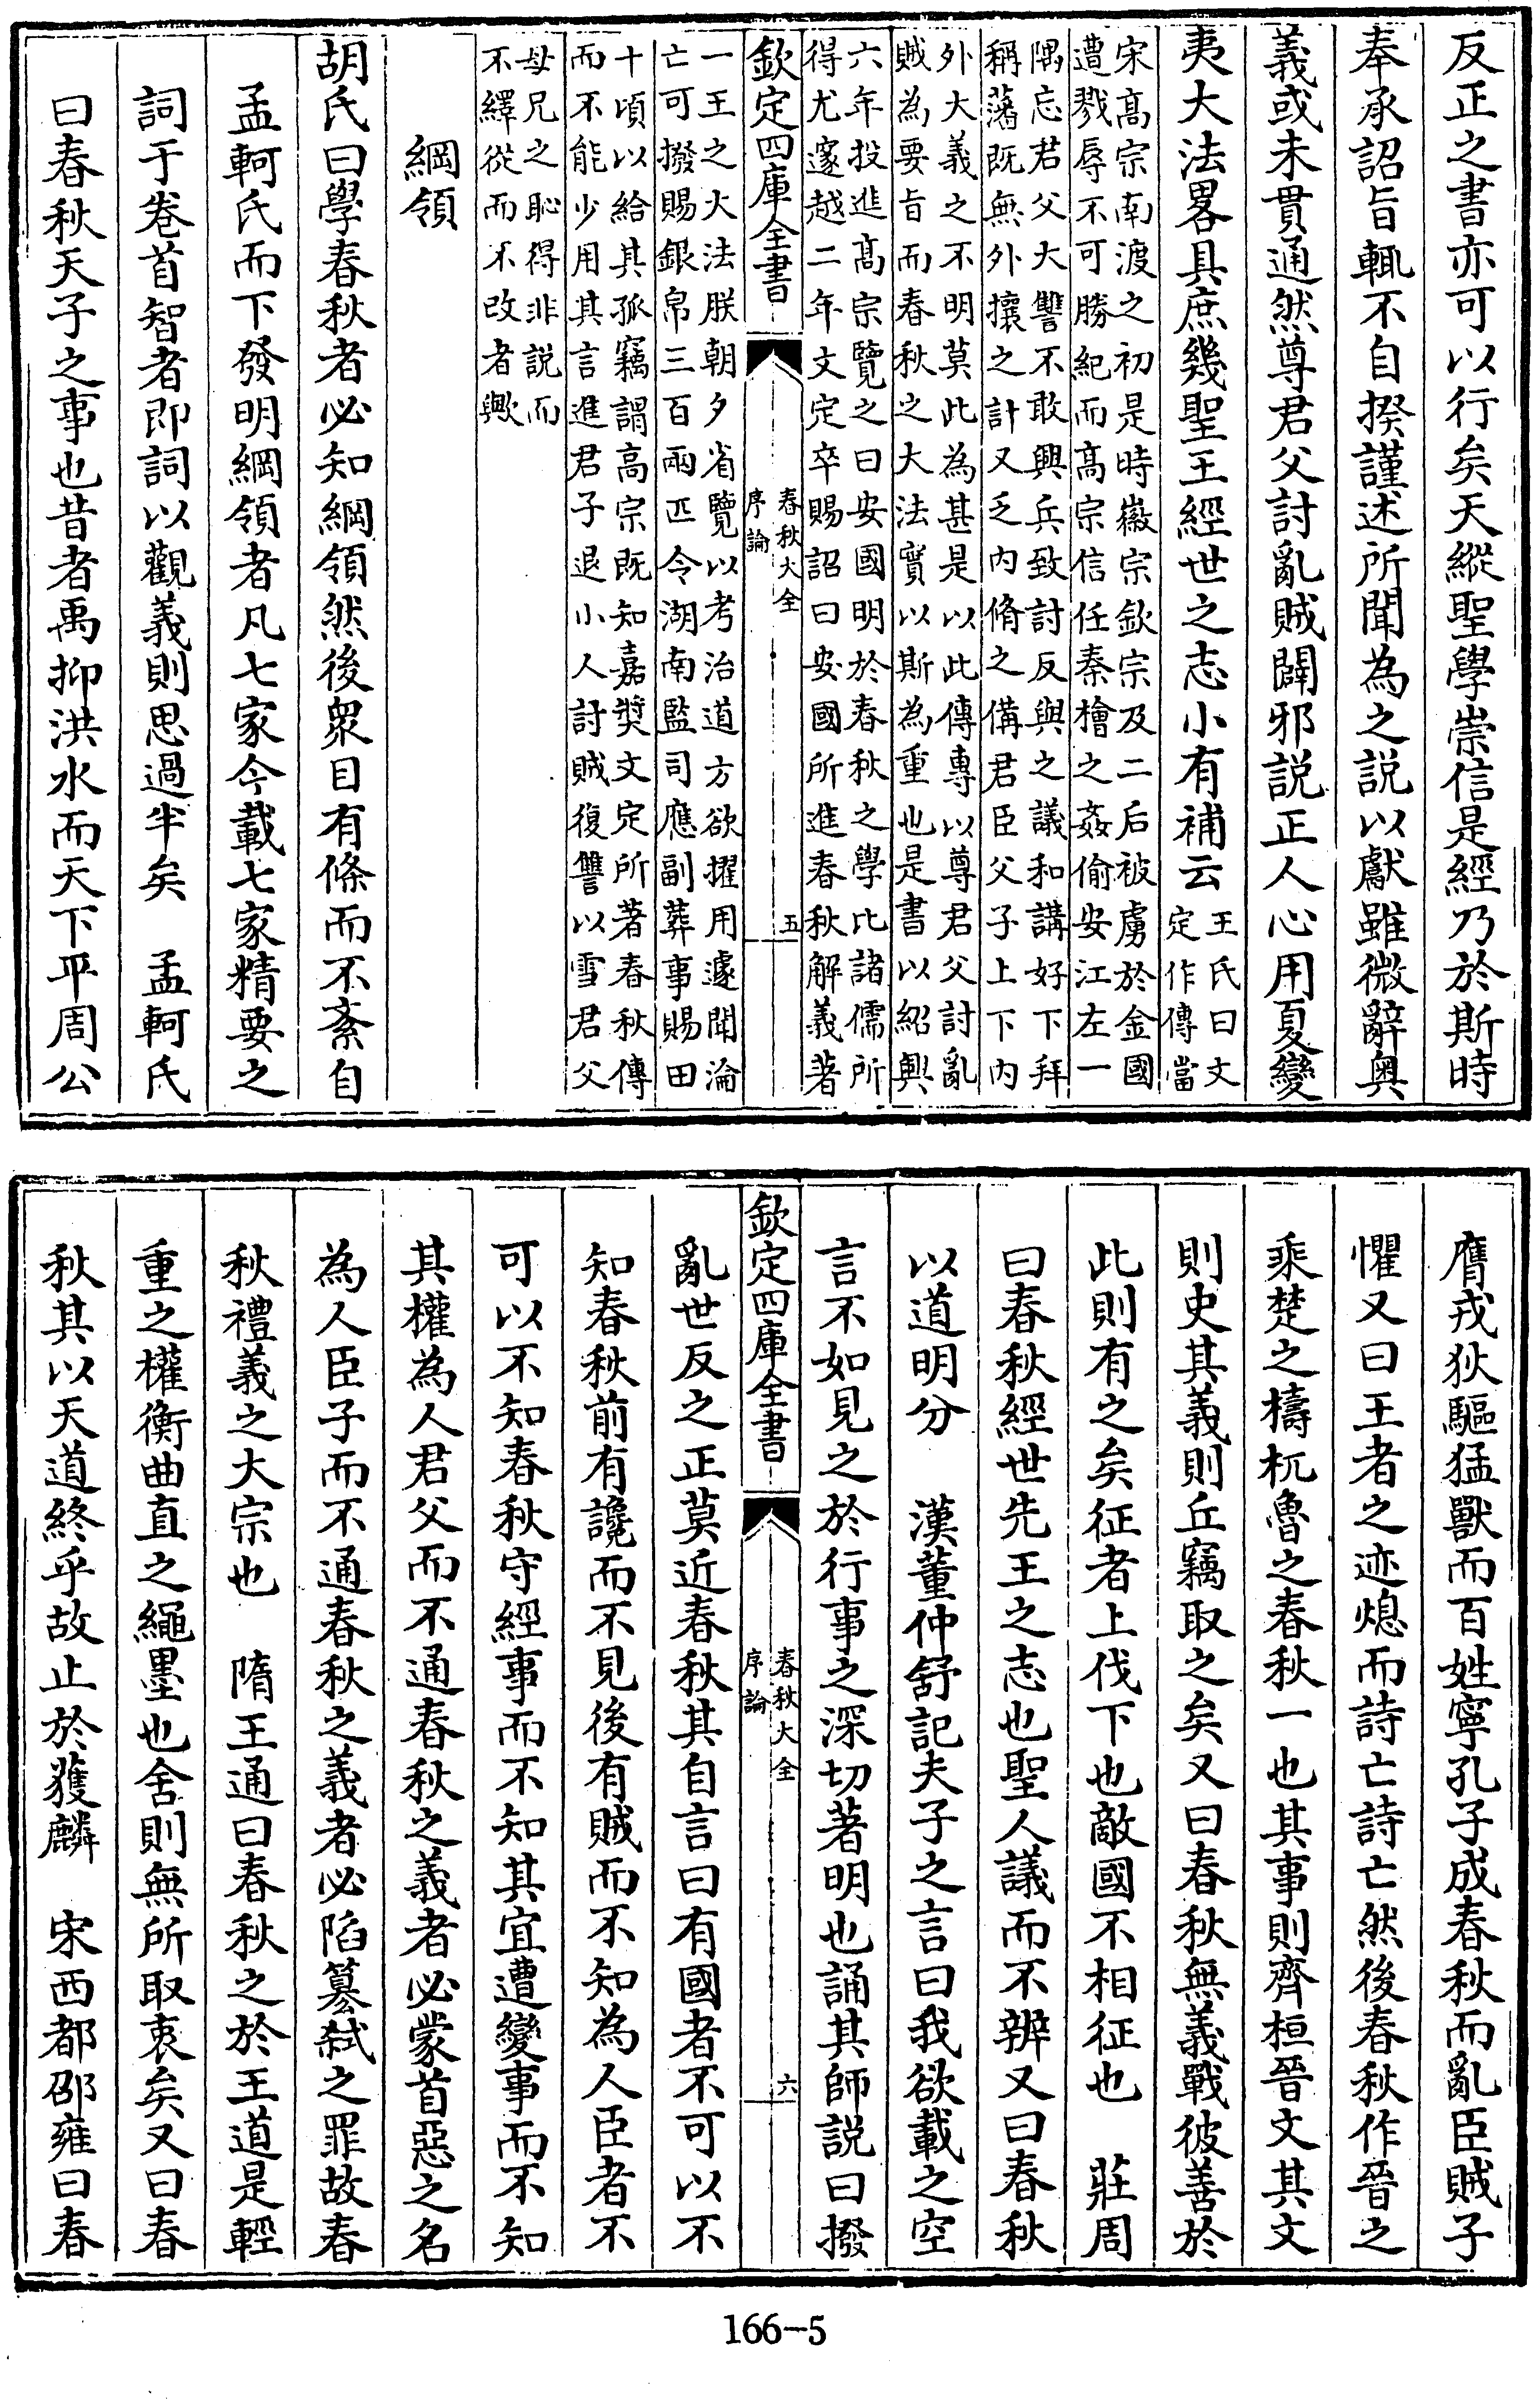 反正之書亦可以行矣天縱聖學崇信是經乃於斯時
奉承詔旨輒不自揆謹述所聞為之説以獻雖微辭奥
義或未貫通然尊君父討亂賊闢邪説正人心用夏變
夷大法畧具庶幾聖王經世之志小有補云
王氏曰文
定作傳當
宋髙宗南渡之初是時徽宗欽宗及二后被虜於金國
遭戮辱不可勝紀而髙宗信任秦檜之姦偷安江左一
隅忘君父大讐不敢興兵致討反與之議和講好下拜
稱藩既無外攘之計又乏内脩之備君臣父子上下内
外大義之不明莫此為甚是以此傳專以尊君父討亂
賊為要旨而春秋之大法實以斯為重也是書以紹興
六年投進髙宗覽之曰安國明於春秋之學比諸儒所
得尤邃越二年文定卒賜詔曰安國所進春秋解義著
欽定四庫全書
春秋大全
序論
五
一王之大法朕朝夕省覽以考治道方欲擢用遽聞淪
亡可撥賜銀帛三百兩匹令湖南監司應副葬事賜田
十頃以給其孤竊謂高宗既知嘉奬文定所著春秋傳
而不能少用其言進君子退小人討賊復讐以雪君父
母兄之恥得非説而
不繹從而不改者歟
綱領
胡氏曰學春秋者必知綱領然後衆目有條而不紊自
孟軻氏而下發明綱領者凡七家今載七家精要之
詞于卷首智者即詞以觀義則思過半矣　孟軻氏
曰春秋天子之事也昔者禹抑洪水而天下平周公
膺戎狄驅猛獸而百姓寧孔子成春秋而亂臣賊子
懼又曰王者之迹熄而詩亡詩亡然後春秋作晉之
乘楚之檮杌魯之春秋一也其事則齊桓晉文其文
則史其義則丘竊取之矣又曰春秋無義戰彼善於
此則有之矣征者上伐下也敵國不相征也　莊周
曰春秋經世先王之志也聖人議而不辨又曰春秋
以道明分　漢董仲舒記夫子之言曰我欲載之空
言不如見之於行事之深切著明也誦其師説曰撥
欽定四庫全書
春秋大全
序論
六
亂世反之正莫近春秋其自言曰有國者不可以不
知春秋前有讒而不見後有賊而不知為人臣者不
可以不知春秋守經事而不知其宜遭變事而不知
其權為人君父而不通春秋之義者必蒙首惡之名
為人臣子而不通春秋之義者必陷簒弑之罪故春
秋禮義之大宗也　隋王通曰春秋之於王道是輕
重之權衡曲直之繩墨也舍則無所取衷矣又曰春
秋其以天道終乎故止於獲麟　宋西都邵雍曰春
166-5